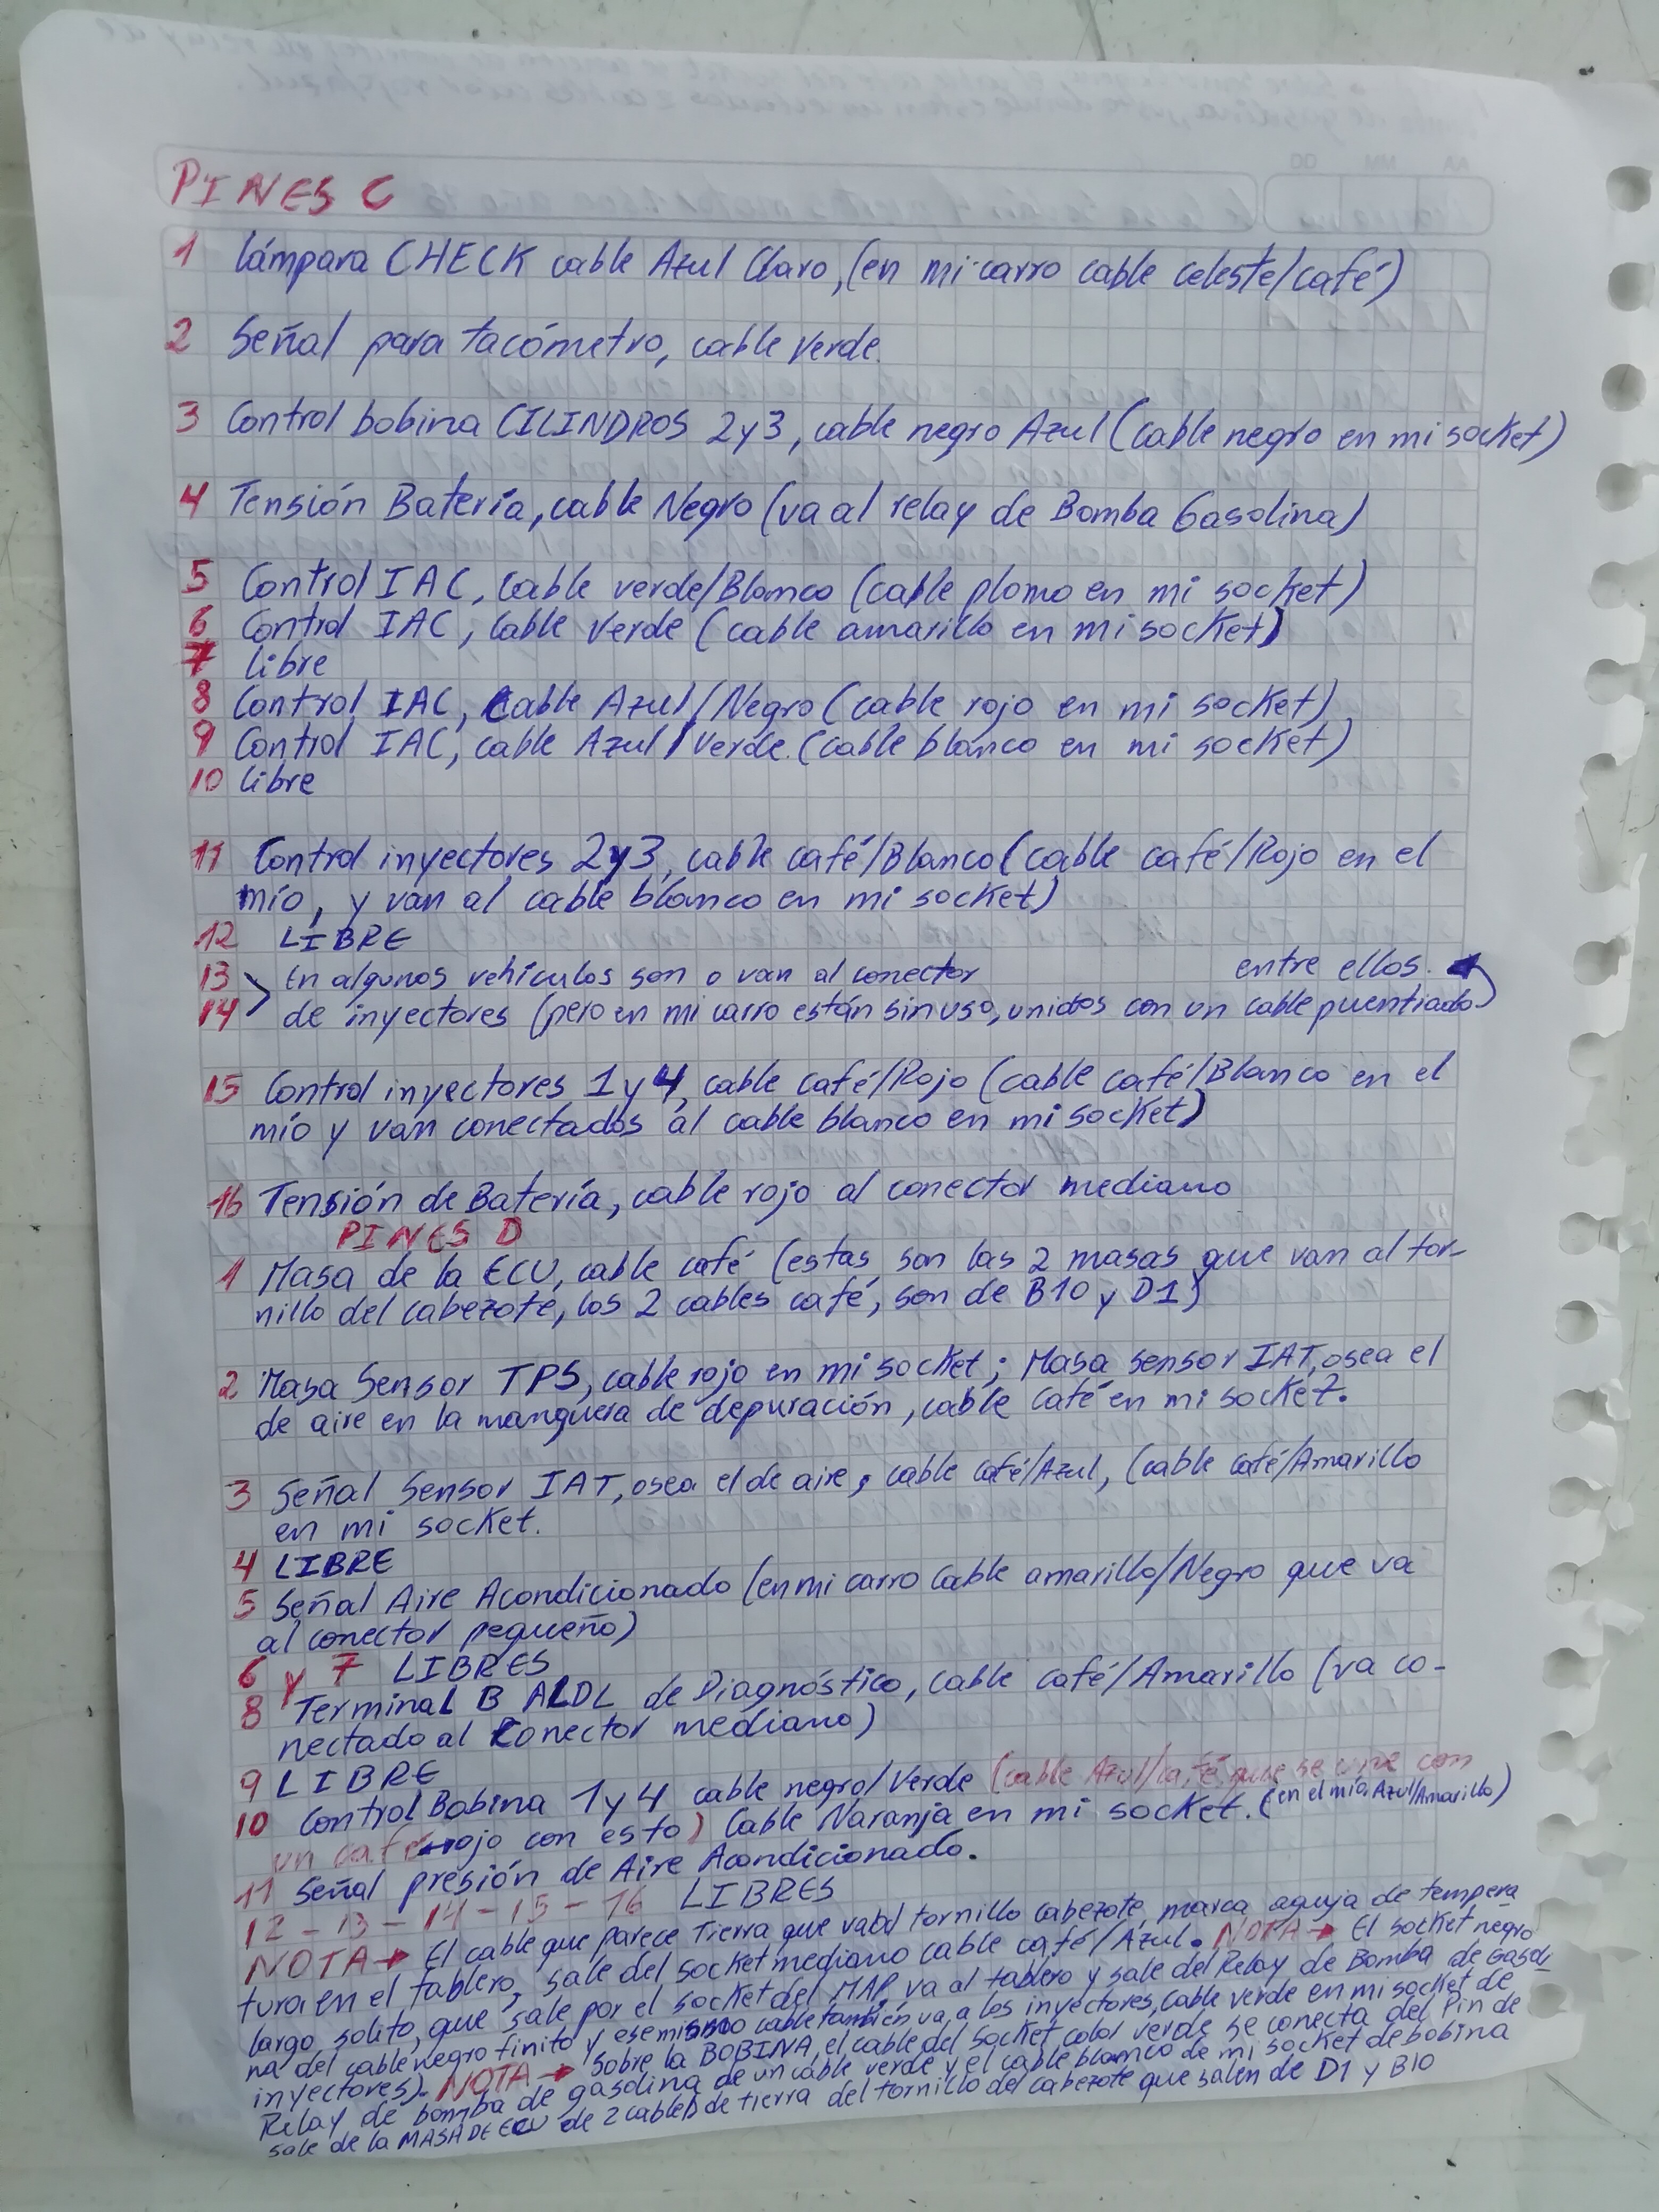 PINES C
1 Lámpara CHECK cable Azul Claro, (en mi carro cable celeste/café)
2 Señal para tacómetro, cable verde.
3 Control bobina CILINDROS 2y3, cable negro Azul (cable negro en mi socket)
4 Tensión Batería, cable Negro (va al relay de Bomba Gasolina)
5 Control IAC, cable verde/Blanco (cable plomo en mi socket)
6 Control IAC, cable Verde (cable amarillo en mi socket)
7 libre
8 Control IAC, cable Azul/Negro (cable rojo en mi socket)
9 Control IAC, cable Azul/Verde. (cable blanco en mi socket)
10 libre
11 Control inyectores 2y3, cable café/Blanco (cable café/Rojo en el
mío, y van al cable blanco en mi socket)
12 LIBRE
13 > En algunos vehículos son o van al conector entre ellos.
14 de inyectores (pero en mi carro están sin uso, unidos con un cable puentiado)
15 Control inyectores 1y4, cable café/Rojo (cable café/Blanco en el
mío y van conectados al cable blanco en mi socket)
16 Tensión de Batería, cable rojo al conector mediano
PINES D
1 Masa de la ECU, cable café (estas son las 2 masas que van al tor-
nillo del cabezote, los 2 cables café, son de B10 y D1)
2 Masa Sensor TPS, cable rojo en mi socket; Masa sensor IAT, osea el
de aire en la manguera de depuración, cable café en mi socket.
3 Señal Sensor IAT, osea el de aire, cable café/Azul, (cable café/Amarillo
en mi socket.
4 LIBRE
5 Señal Aire Acondicionado (en mi carro cable amarillo/Negro que va
al conector pequeño)
6 y 7 LIBRES
8 Terminal B ALDL de Diagnóstico, cable café/Amarillo (va co-
nectado al Conector mediano)
9 LIBRE
10 Control Bobina 1y4 cable negro/Verde (cable Azul/café que se une con
un café rojo con esto) Cable Naranja en mi socket. (en el mío, Azul/Amarillo)
11 Señal presión de Aire Acondicionado.
12-13-14-15-16 LIBRES
NOTA → El cable que parece Tierra que va al tornillo cabezote, marca aguja de tempera
tura en el tablero, sale del socket mediano cable café/Azul. NOTA → El socket negro
largo solito, que sale por el socket del MAP, va al tablero y sale del Relay de Bomba de Gasoli
na del cable negro finito y ese mismo cable también va a los inyectores, cable verde en mi socket de
inyectores). NOTA → Sobre la BOBINA, el cable del socket color verde se conecta del Pin de
Relay de bomba de gasolina de un cable verde y el cable blanco de mi socket de bobina
sale de la MASA DE ECU de 2 cables de tierra del tornillo del cabezote que salen de D1 y B10